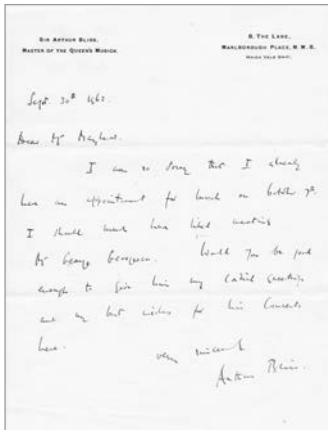 SIR ARTHUR BLISS,
MASTER OF THE QUEEN'S MUSICK.
8, THE LANE,
MARLBOROUGH PLACE, N.W.8.
MAIDA VALE
Sept. 30th 1962.
Dear Mr
I am so sorry that I already
have an appointment for lunch on October 7th.
I should much have liked meeting
Mr George Georgescu. Would you be good
enough to give him my cordial greetings
and my best wishes for his Concerts
here.
very sincerely
Arthur Bliss.